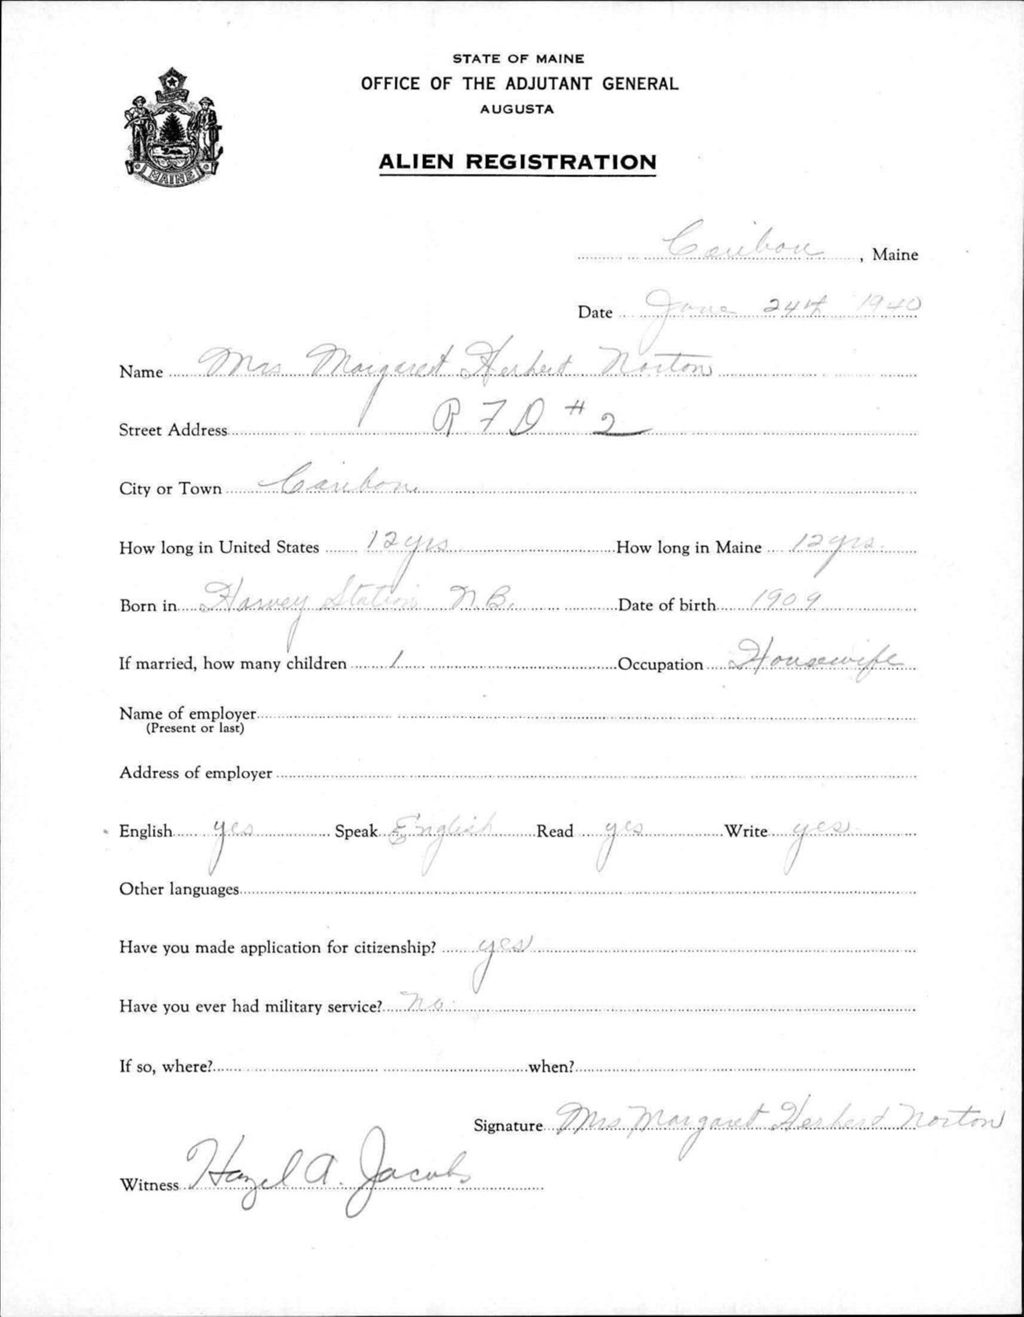 STATE OF MAINE
OFFICE OF THE ADJUTANT GENERAL
AUGUSTA
ALIEN REGISTRATION
MAINE
Caribou, Maine
Date June 24th 1940
Name Mrs Margaret Herbert Norton
Street Address R F D # 2
City or Town Caribou
How long in United States 12 yrs How long in Maine 12 yrs.
Born in Harvey Station N B. Date of birth 1909
If married, how many children 1 Occupation Housewife
Name of employer
(Present or last)
Address of employer
English yes Speak English Read yes Write yes
Other languages
Have you made application for citizenship? yes
Have you ever had military service? No.
If so, where? when?
Signature Mrs Margaret Herbert Norton
Witness Hazel A. Jacobs